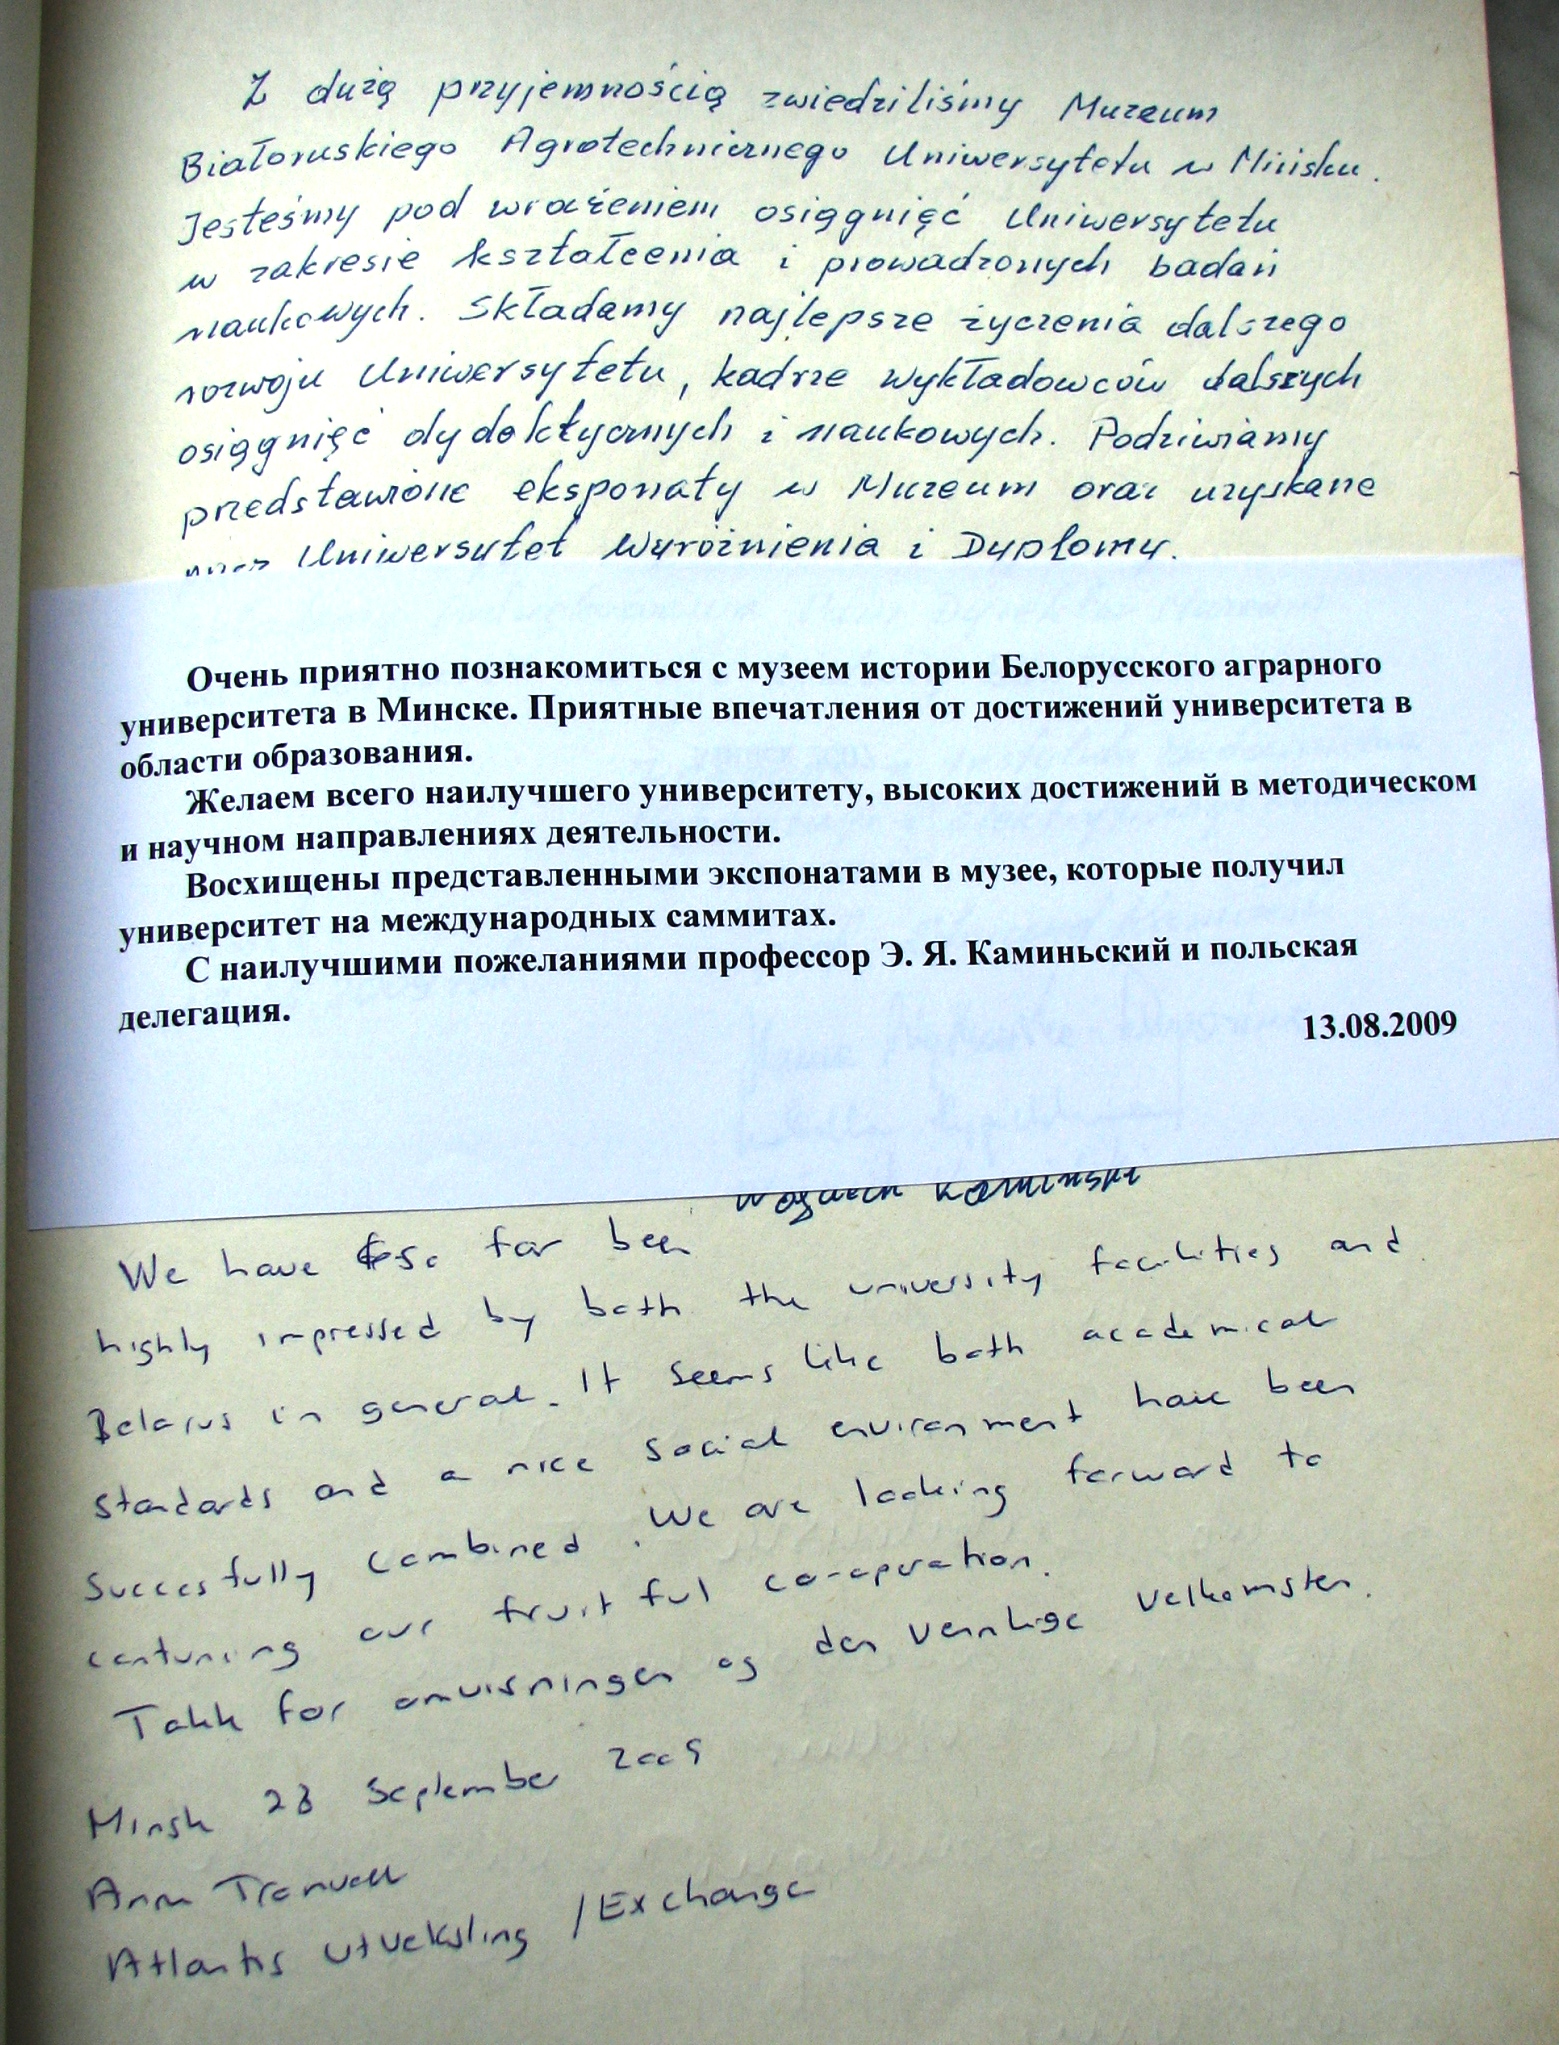 Z dużą przyjemnością zwiedziliśmy Muzeum
Białoruskiego Agrotechnicznego Uniwersytetu w Mińsku.
Jesteśmy pod wrażeniem osiągnięć Uniwersytetu
w zakresie kształcenia i prowadzonych badań
naukowych. Składamy najlepsze życzenia dalszego
rozwoju Uniwersytetu, kadrze wykładowców dalszych
osiągnięć dydaktycznych i naukowych. Podziwiamy
przedstawione eksponaty w Muzeum oraz uzyskane
przez Uniwersytet Wyróżnienia i Dyplomy.
Очень приятно познакомиться с музеем истории Белорусского аграрного
университета в Минске. Приятные впечатления от достижений университета в
области образования.
Желаем всего наилучшего университету, высоких достижений в методическом
и научном направлениях деятельности.
Восхищены представленными экспонатами в музее, которые получил
университет на международных саммитах.
С наилучшими пожеланиями профессор Э. Я. Каминьский и польская
делегация.
13.08.2009
Kamiński
We have so far been
highly impressed by both the university facilities and
Belarus in general. It seems like both academical
standards and a nice social environment have been
succesfully combined. We are looking forward to
contuning our fruitful co-operation.
Takk for omvisningen og den vennlige velkomsten.
Minsk 28 September 2009
Atlantis utveksling / Exchange